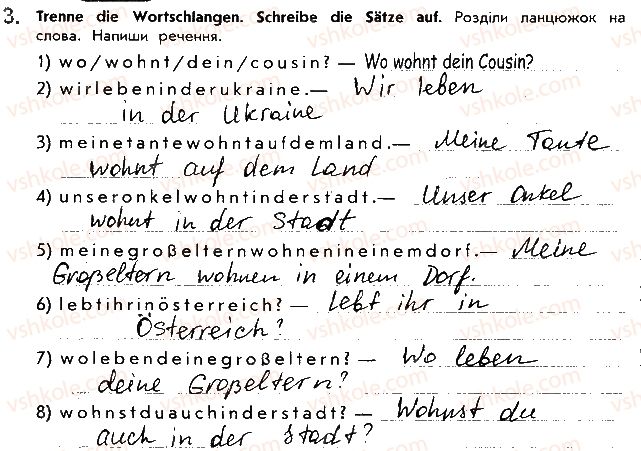 3. Trenne die Wortschlangen. Schreibe die Sätze auf. Розділи ланцюжок на
слова. Напиши речення.
1) wo/wohnt/dein/cousin? — Wo wohnt dein Cousin?
2) wirlebeninderukraine.— Wir leben
in der Ukraine
3) meinetantewohntaufdemland.— Meine Tante
wohnt auf dem Land
4) unseronkelwohntinderstadt.— Unser Onkel
wohnt in der Stadt
5) meinegroßelternwohnenineinemdorf.— Meine
Großeltern wohnen in einem Dorf.
6) lebtihrinösterreich? — Lebt ihr in
Österreich?
7) wolebendeinegroßeltern? — Wo leben
deine Großeltern?
8) wohnstduauchinderstadt? — Wohnst du
auch in der Stadt?